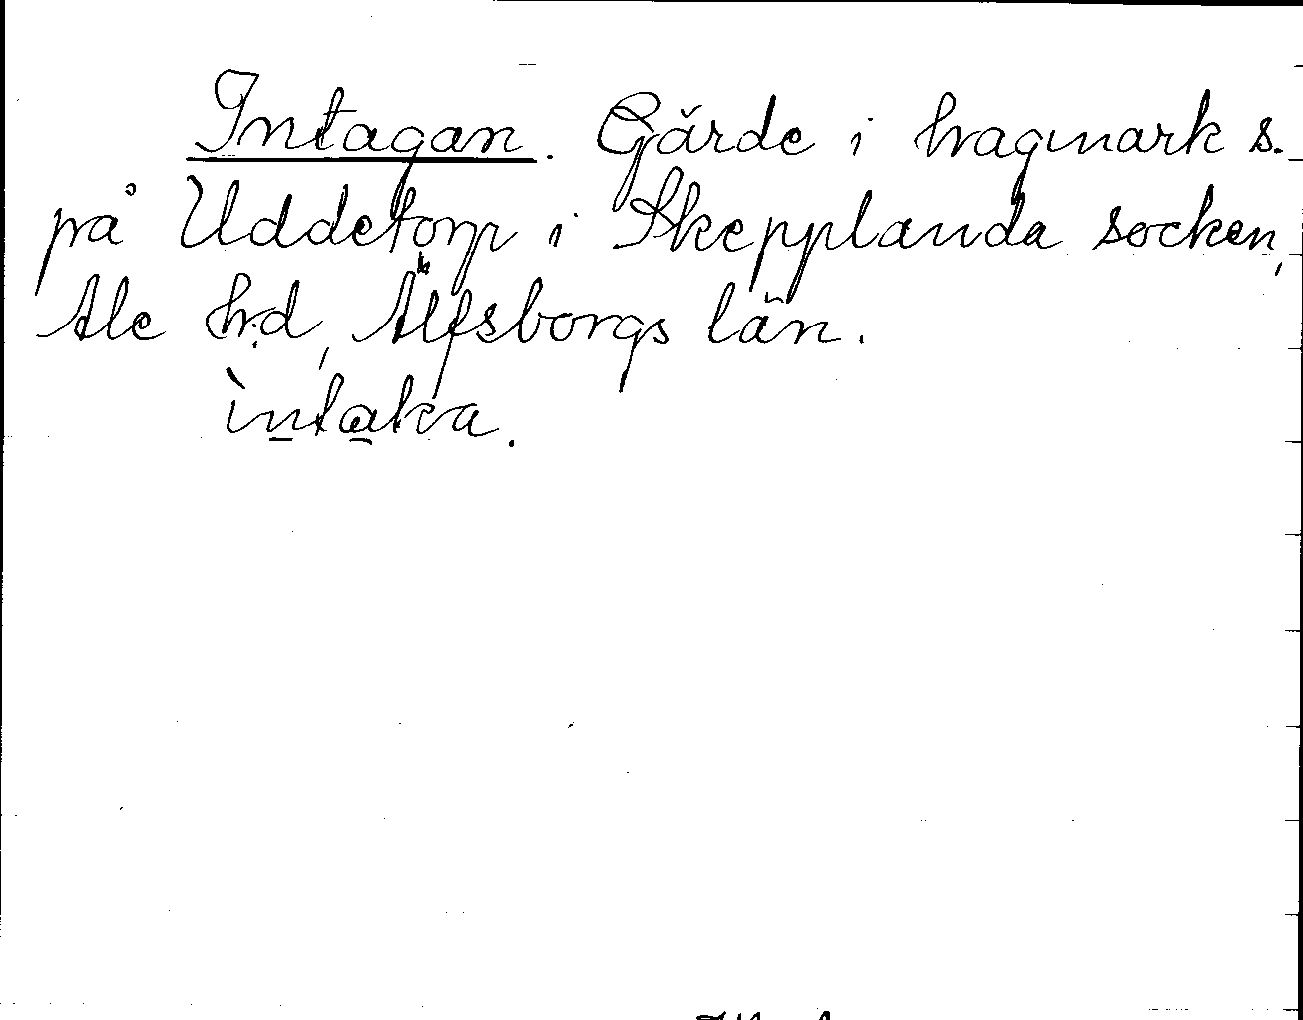 Intagan. Gärde i hagmark s.
på Uddetorp i Skepplanda socken,
Ale hd, Älfsborgs län.
ìntaka.